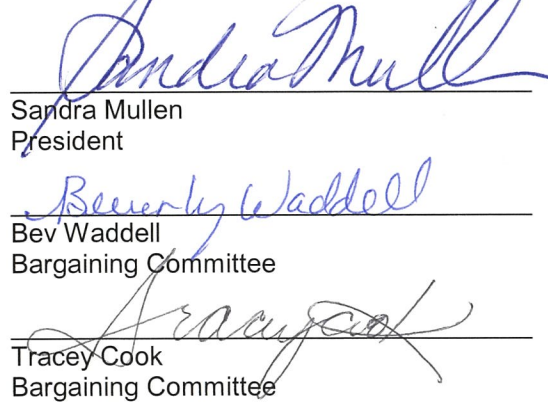 Sandra Mull
Sandra Mullen
President
Beverly Waddell
Bev Waddell
Bargaining Committee
Tracey Cook
Tracey Cook
Bargaining Committee